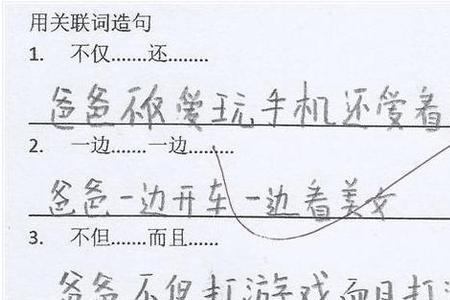 用关联词造句
1. 不仅.......还.........
爸爸不仅爱玩手机还爱看
2. 一边.......一边.........
爸爸一边开车一边看美女
3. 不但.......而且.......
爸爸不但打游戏而且打